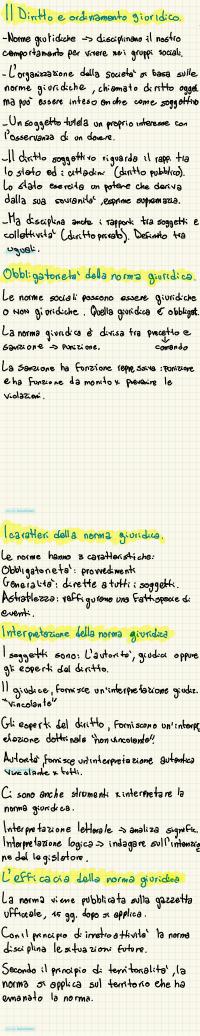 Il Diritto e ordinamento giuridico.
-Norme giuridiche → disciplinano il nostro
comportamento per vivere nei gruppi sociali.
-L'organizzazione della societa' si basa sulle
norme giuridiche, chiamato diritto ogget
ma può essere inteso anche come soggettivo
-Un soggetto tutela un proprio interesse con
l'osservanza di un dovere.
-Il diritto soggettivo riguarda il rapp. tra
lo stato ed i cittadini (diritto pubblico).
Lo stato esercita un potere che deriva
dalla sua sovranita', esprime supremazia.
-Ma disciplina anche i rapporti tra soggetti e
collettività (diritto privato). Definito tra
uguali.
Obbligatorieta' della norma giuridica.
Le norme sociali possono essere giuridiche
o non giuridiche. Quella giuridica è obbligat.
La norma giuridica è divisa tra precetto e
sanzione → punizione. comando
La sanzione ha funzione repressiva: punizione
e ha funzione da monito x prevenire le
violazioni.
I caratteri della norma giuridica.
Le norme hanno 3 caratteristiche:
Obbligatorieta': provvedimenti
Generalita': dirette a tutti i soggetti.
Astrattezza: raffigurano una fattispecie di
eventi.
Interpretazione della norma giuridica
I soggetti sono: L'autorità, giudici oppure
gli esperti del diritto.
Il giudice, fornisce un'interpretazione giudiz.
"vincolante"
Gli esperti del diritto, forniscono un'interpr
etazione dottrinale "non vincolante".
Autorità fornisce un'interpretazione autentica
vincolante x tutti.
Ci sono anche strumenti x interpretare la
norma giuridica.
Interpretazione letterale → analizza signific.
Interpretazione logica → indagare sull'intenzio
ne del legislatore.
L'efficacia della norma giuridica
La norma viene pubblicata sulla gazzetta
ufficiale, 15 gg. dopo si applica.
Con il principio di irretroattività la norma
disciplina le situazioni future.
Secondo il principio di territorialità, la
norma si applica sul territorio che ha
emanato la norma.